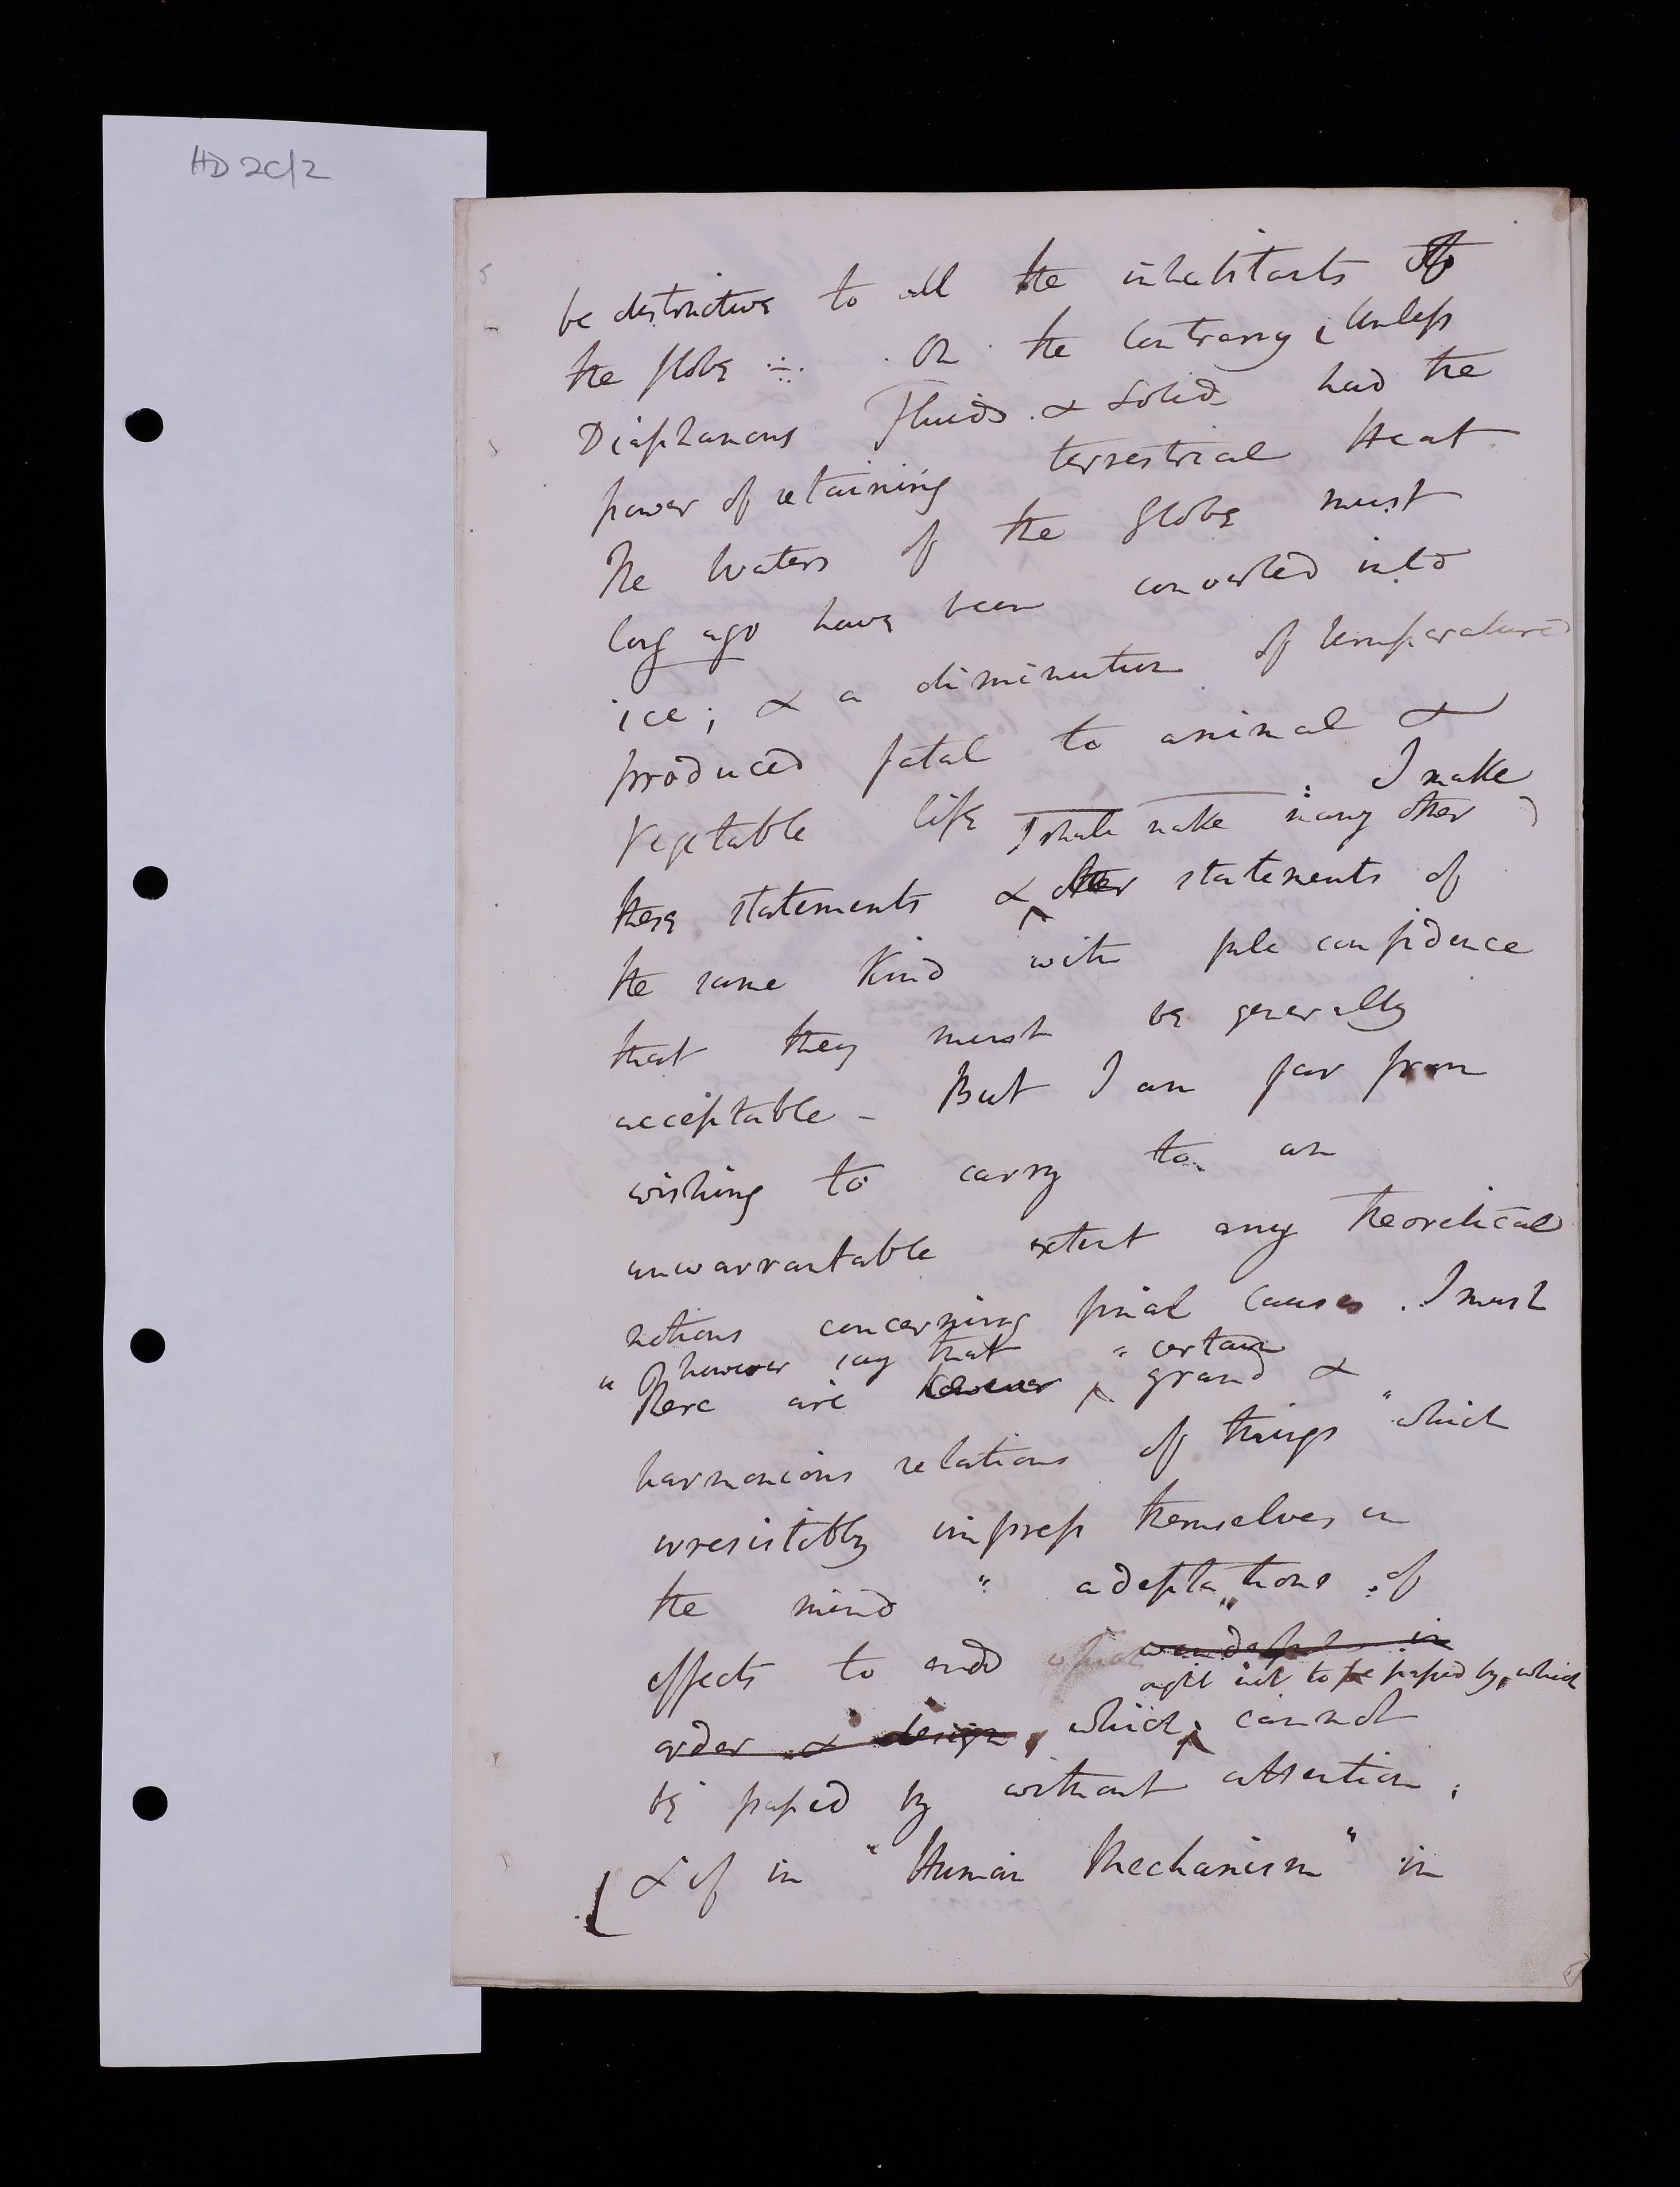 HD 2C/2
be destructive to all the inhabitants of
the globe ÷. On the contrary, Unless
Diaphanous Fluids & Solids had the
power of retaining terrestrial Heat
The Waters of the Globe must
long ago have been converted into
ice; & a diminution of temperature
produced fatal to animal &
Vegetable life : I make
I shall make many other
these statements & other statements of
the same Kind with full confidence
that they must be generally
acceptable - But I am far from
wishing to carry to an
unwarrantable extent any theoretical
notions concerning final causes. I must
however say that " certain
" There are however grand &
harmonious relations of things " which
irresistibly impress themselves on
the mind " adaptations of
effects to ends wonderful in
ought not to be passed by, which
order & design, which cannot
be passed by without attention,
& if in "Human Mechanism" in